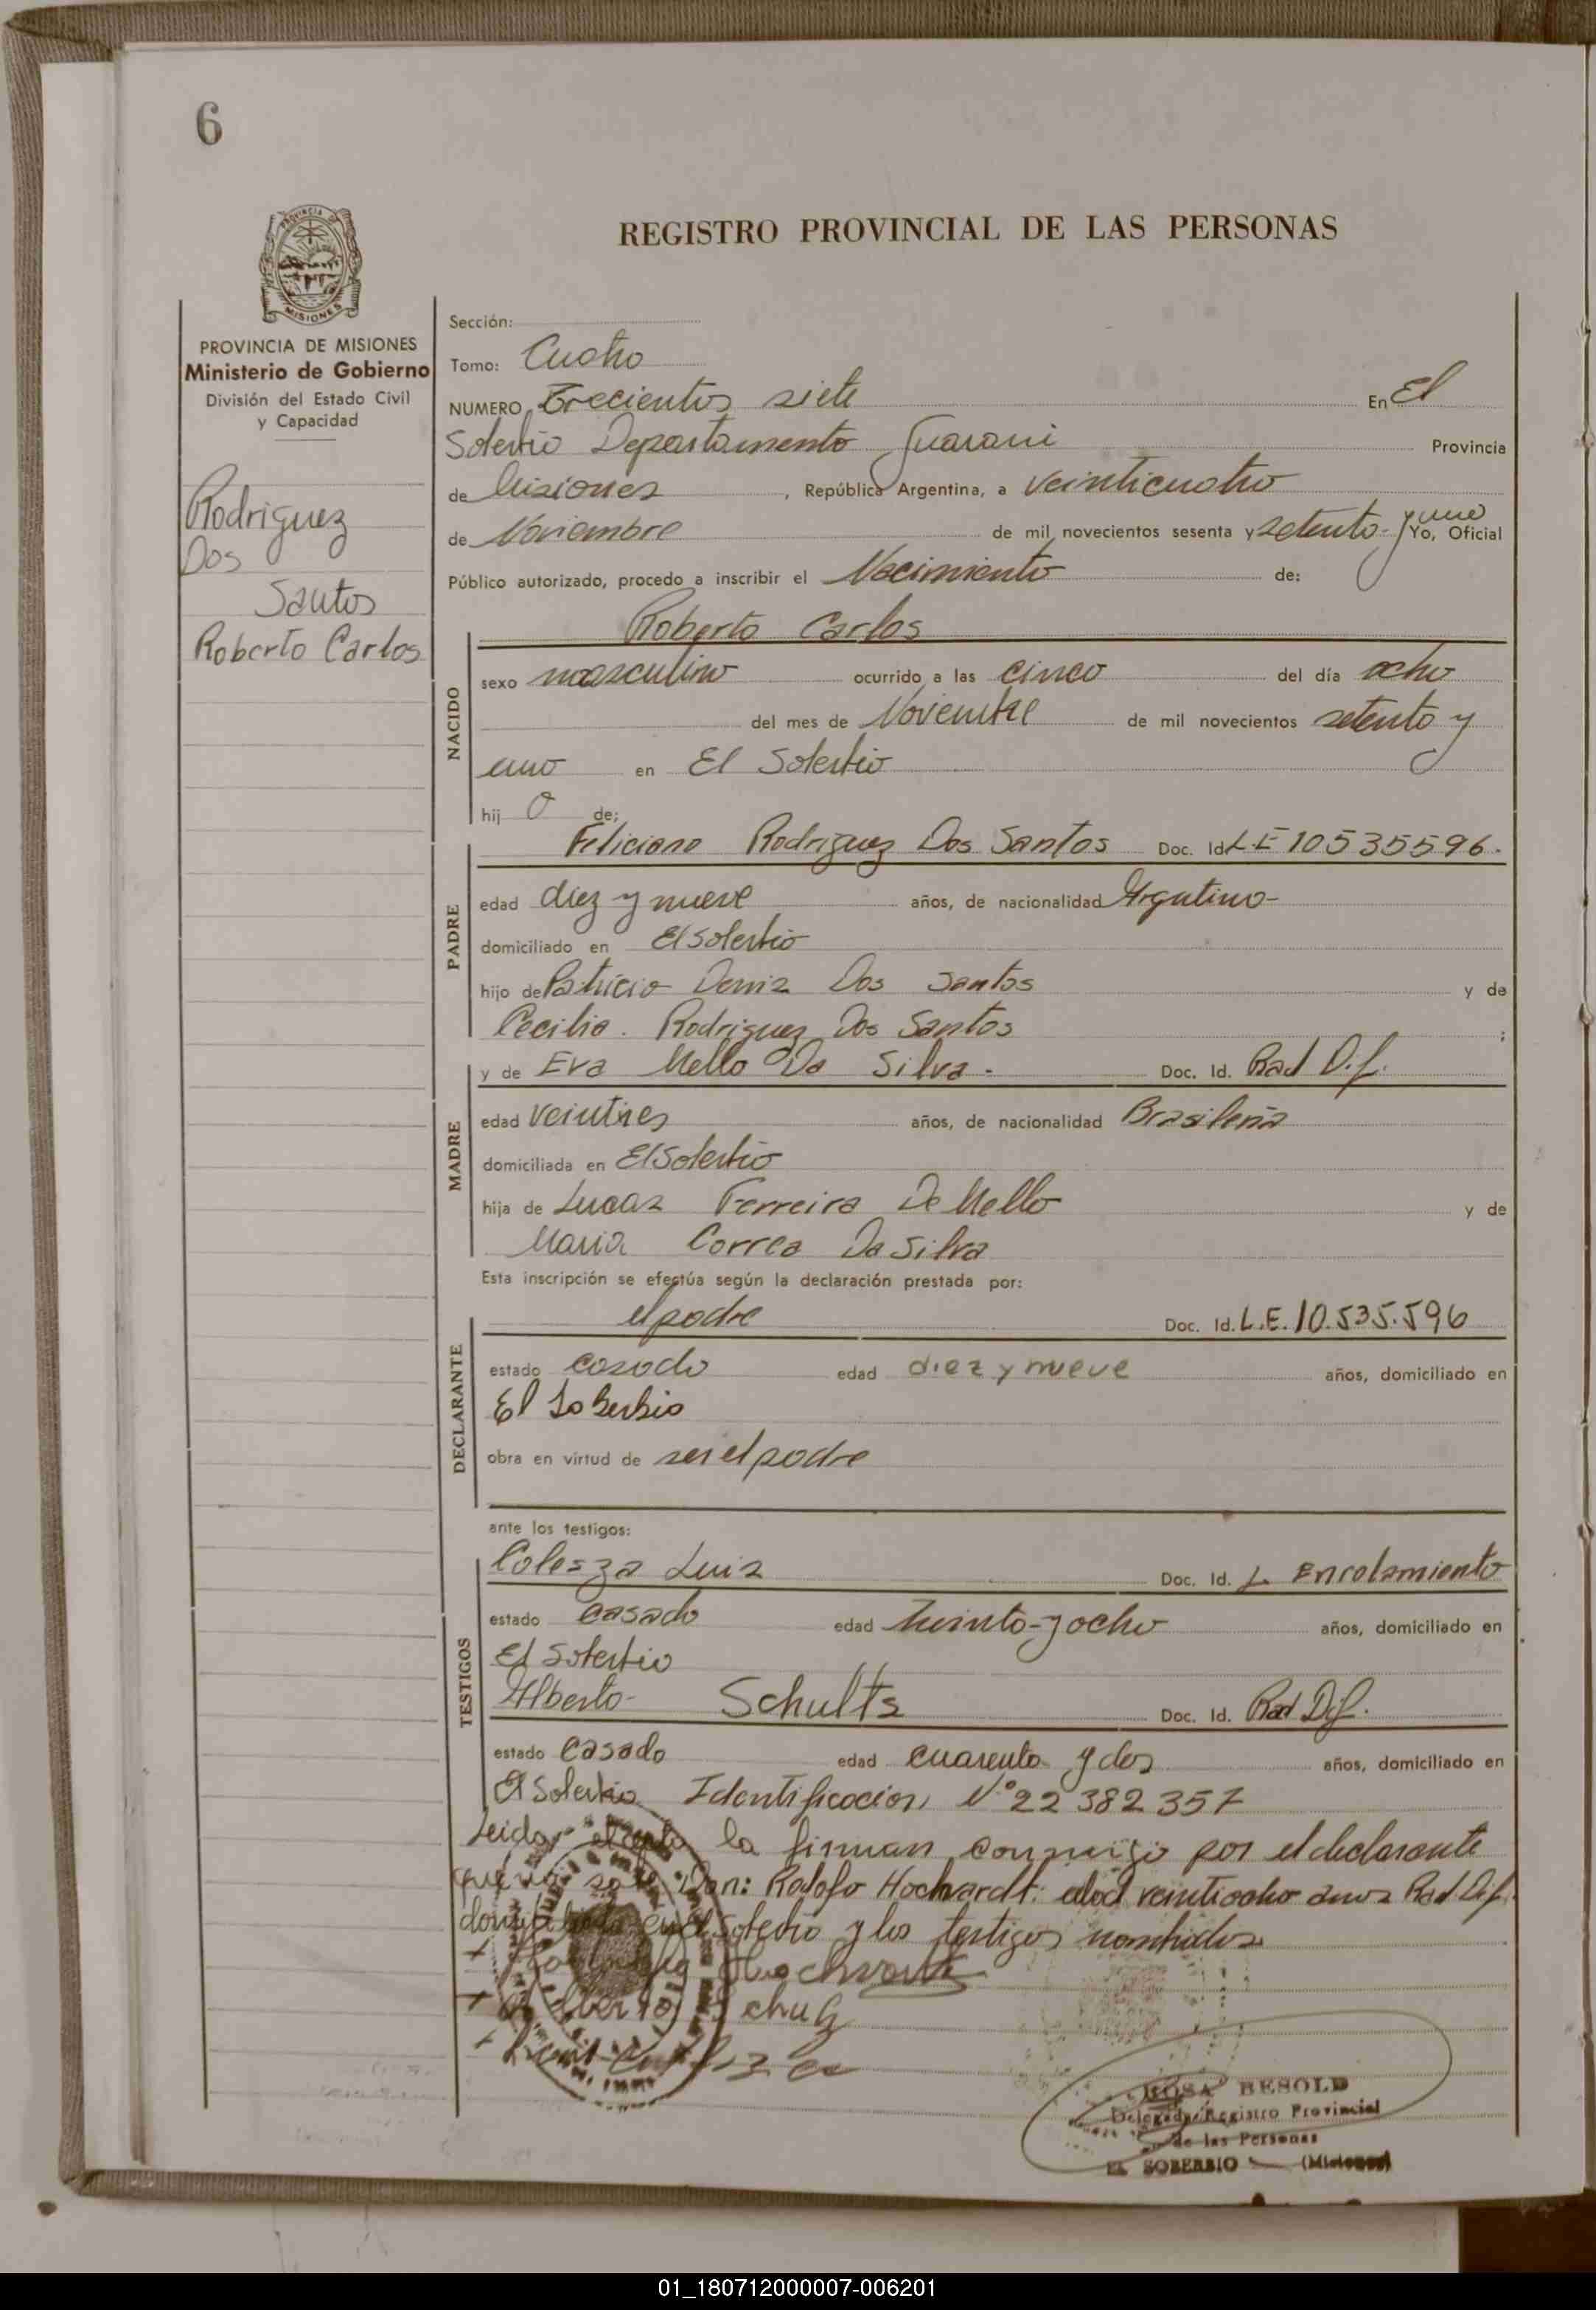 6
REGISTRO PROVINCIAL DE LAS PERSONAS
PROVINCIA DE
MISIONES
PROVINCIA DE MISIONES
Ministerio de Gobierno
División del Estado Civil
y Capacidad
Rodriguez
Dos
Santos
Roberto Carlos
Sección:
Tomo: Cuatro
NUMERO Trecientos siete En El
Soberbio Departamento Guarani Provincia
de Misiones, República Argentina, a veinticuatro
de Noviembre de mil novecientos sesenta y setenta y uno Yo, Oficial
Público autorizado, procedo a inscribir el Nacimiento de:
Roberto Carlos
NACIDO
sexo masculino ocurrido a las cinco del día ocho
del mes de Noviembre de mil novecientos setenta y
uno en El Soberbio
hijo de;
PADRE
Feliciano Rodriguez Dos Santos Doc. Id. LE 10535596.
edad diez y nueve años, de nacionalidad Argentino-
domiciliado en El Soberbio
hijo de Patricio Deniz Dos Santos y de
Cecilia. Rodriguez Dos Santos ;
MADRE
y de Eva Mello Da Silva. Doc. Id. Rad D.f.
edad veintres años, de nacionalidad Brasileña
domiciliada en El Soberbio
hija de Lucas Ferreira De Mello y de
Maria Correa Da Silva
Esta inscripción se efectúa según la declaración prestada por:
DECLARANTE
el padre Doc. Id. L.E. 10.535.596
estado casado edad diez y nueve años, domiciliado en
El Soberbio
obra en virtud de ser el padre
ante los testigos:
TESTIGOS
Colesza Luis Doc. Id. L. Enrolamiento
estado casado edad treinta-y ocho años, domiciliado en
El Soberbio
Alberto- Schults Doc. Id. Rad Dif.
estado Casado edad cuarenta y dos años, domiciliado en
El Soberbio Identificacion Nº 22 382 357
Leida el acta la firman conmigo por el declarante
que no sabe Don: Rodolfo Hochvardt: edad veintiocho anos Rad Dif.
domiciliado en El Soberbio y los testigos nombrados
Alberto Schulz
ROSA BESOLD
Delegada Registro Provincial
de las Personas
EL SOBERBIO (Misiones)
01_180712000007-006201